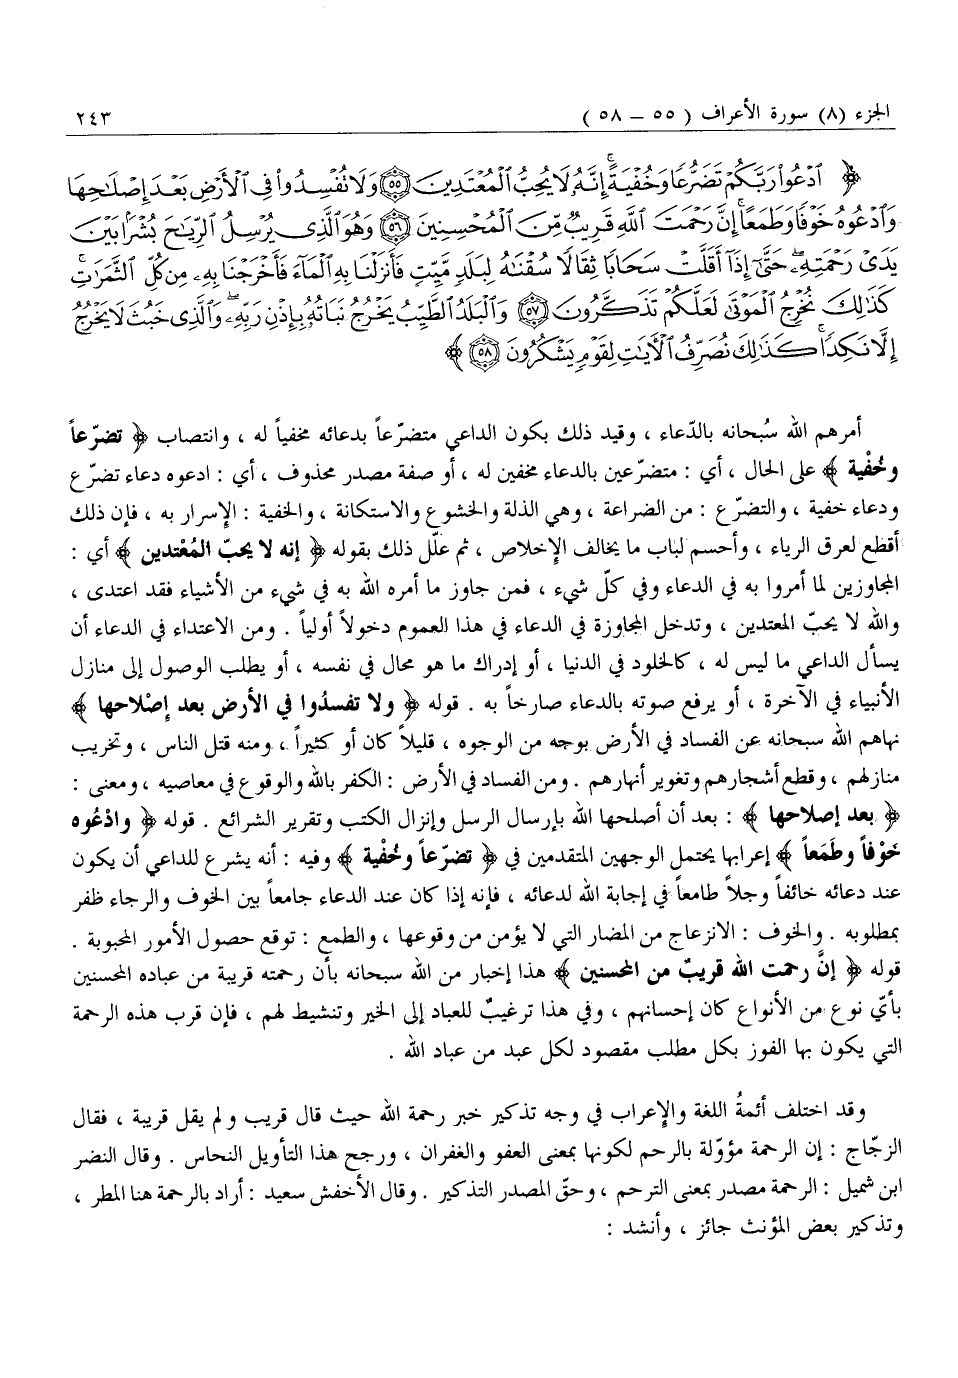 الجزء (٨) سورة الأعراف ( ٥٥ – ٥٨ ) ٢٤٣
﴿ ٱدْعُوا۟ رَبَّكُمْ تَضَرُّعًا وَخُفْيَةً ۚ إِنَّهُۥ لَا يُحِبُّ ٱلْمُعْتَدِينَ ۝٥٥ وَلَا نُفْسِدُوا۟ فِى ٱلْأَرْضِ بَعْدَ إِصْلَٰحِهَا
وَٱدْعُوهُ خَوْفًا وَطَمَعًا ۚ إِنَّ رَحْمَتَ ٱللَّهِ قَرِيبٌ مِّنَ ٱلْمُحْسِنِينَ ۝٥٦ وَهُوَ ٱلَّذِى يُرْسِلُ ٱلرِّيَٰحَ بُشْرًۢا بَيْنَ
يَدَىْ رَحْمَتِهِۦ ۖ حَتَّىٰٓ إِذَآ أَقَلَّتْ سَحَابًا ثِقَالًا سُقْنَٰهُ لِبَلَدٍ مَّيِّتٍ فَأَنزَلْنَا بِهِ ٱلْمَآءَ فَأَخْرَجْنَا بِهِۦ مِن كُلِّ ٱلثَّمَرَٰتِ ۚ
كَذَٰلِكَ نُخْرِجُ ٱلْمَوْتَىٰ لَعَلَّكُمْ تَذَكَّرُونَ ۝٥٧ وَٱلْبَلَدُ ٱلطَّيِّبُ يَخْرُجُ نَبَاتُهُۥ بِإِذْنِ رَبِّهِۦ ۖ وَٱلَّذِى خَبُثَ لَا يَخْرُجُ
إِلَّا نَكِدًا ۚ كَذَٰلِكَ نُصَرِّفُ ٱلْأَيَٰتِ لِقَوْمٍ يَشْكُرُونَ ۝٥٨ ﴾
أمرهم الله سُبحانه بالدّعاء ، وقيد ذلك بكون الداعي متضرّعاً بدعائه مخفياً له ، وانتصاب ﴿ تضرّعاً
وخُفْية ﴾ على الحال ، أي : متضرّعين بالدعاء مخفين له ، أو صفة مصدر محذوف ، أي : ادعوه دعاء تضرّع
ودعاء خفية ، والتضرّع : من الضراعة ، وهي الذلة والخشوع والاستكانة ، والخفية : الإسرار به ، فإن ذلك
أقطع لعرق الرياء ، وأحسم لباب ما يخالف الإخلاص ، ثم علّل ذلك بقوله ﴿ إنه لا يحبّ المُعْتدين ﴾ أي :
المجاوزين لما أمروا به في الدعاء وفي كلّ شيء ، فمن جاوز ما أمره الله به في شيء من الأشياء فقد اعتدى ،
والله لا يحبّ المعتدين ، وتدخل المجاوزة في الدعاء في هذا العموم دخولاً أولياً . ومن الاعتداء في الدعاء أن
يسأل الداعي ما ليس له ، كالخلود في الدنيا ، أو إدراك ما هو محال في نفسه ، أو يطلب الوصول إلى منازل
الأنبياء في الآخرة ، أو يرفع صوته بالدعاء صارخاً به . قوله ﴿ ولا تفسدُوا في الأرض بعد إصْلاحها ﴾
نهاهم الله سبحانه عن الفساد في الأرض بوجه من الوجوه ، قليلاً كان أو كثيراً ، ومنه قتل الناس ، وتخريب
منازلهم ، وقطع أشجارهم وتغوير أنهارهم . ومن الفساد في الأرض : الكفر بالله والوقوع في معاصيه ، ومعنى :
﴿ بعد إصلاحها ﴾ : بعد أن أصلحها الله بإرسال الرسل وإنزال الكتب وتقرير الشرائع . قوله ﴿ وادْعُوه
خَوْفاً وطَمَعاً ﴾ إعرابها يحتمل الوجهين المتقدمين في ﴿ تضرّعاً وخُفْية ﴾ وفيه : أنه يشرع للداعي أن يكون
عند دعائه خائفاً وجلاً طامعاً في إجابة الله لدعائه ، فإنه إذا كان عند الدعاء جامعاً بين الخوف والرجاء ظفر
بمطلوبه . والخوف : الانزعاج من المضار التي لا يؤمن من وقوعها ، والطمع : توقع حصول الأمور المحبوبة .
قوله ﴿ إنَّ رحمت الله قريبٌ من المحسنين ﴾ هذا إخبار من الله سبحانه بأن رحمته قريبة من عباده المحسنين
بأيّ نوع من الأنواع كان إحسانهم ، وفي هذا ترغيبٌ للعباد إلى الخير وتنشيط لهم ، فإن قرب هذه الرحمة
التي يكون بها الفوز بكل مطلب مقصود لكل عبد من عباد الله .
وقد اختلف أئمةُ اللغة والإعراب في وجه تذكير خبر رحمة الله حيث قال قريب ولم يقل قريبة ، فقال
الزجّاج : إن الرحمة مؤوّلة بالرحم لكونها بمعنى العفو والغفران ، ورجح هذا التأويل النحاس . وقال النضر
ابن شميل : الرحمة مصدر بمعنى الترحم ، وحقّ المصدر التذكير . وقال الأخفش سعيد : أراد بالرحمة هنا المطر ،
وتذكير بعض المؤنث جائز ، وأنشد :